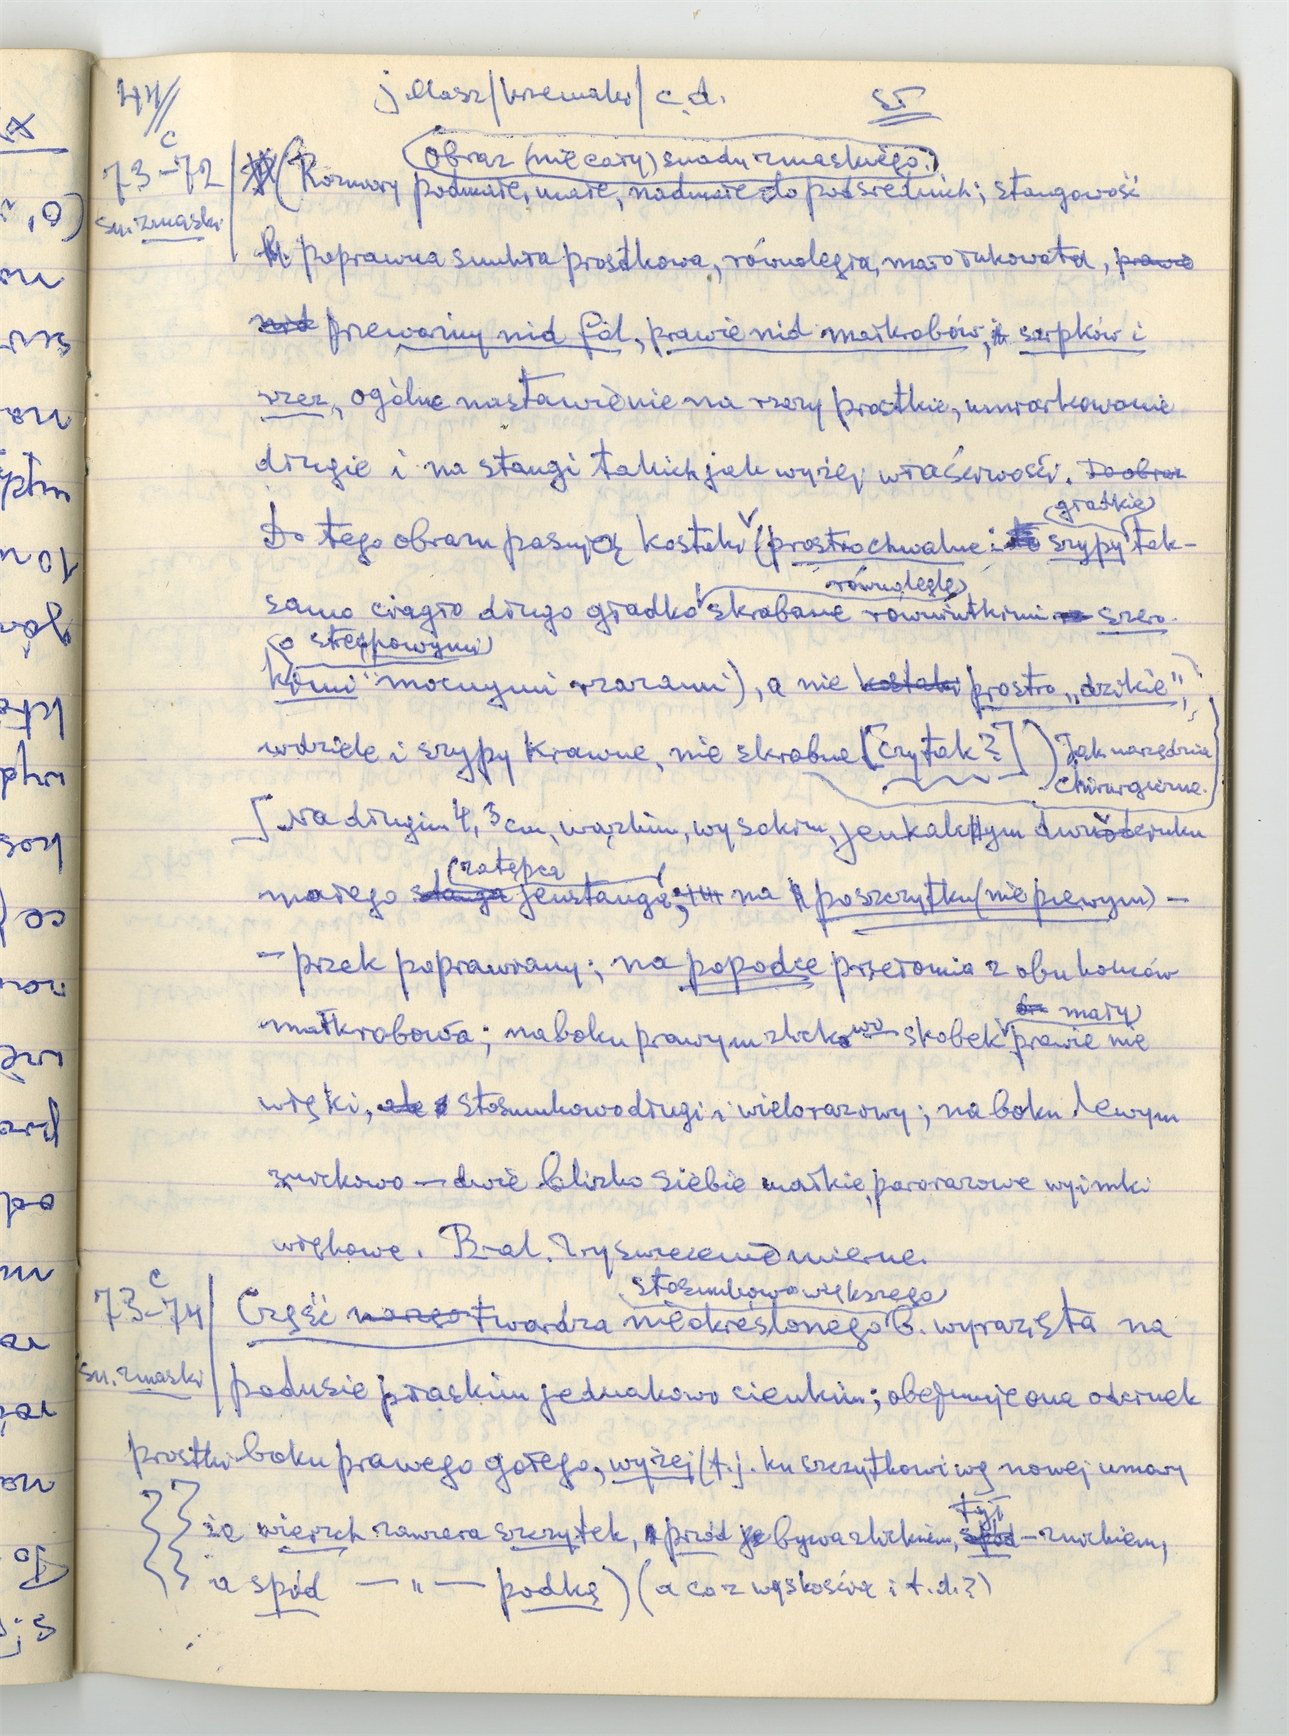 44//
j. Masz/krzemaki/ c.d.
ST
73-72 c
sm. zmaski
(Obraz (nie cały) snadu zmaskiego:)
Rozmiary podmałe, małe, nadmałe do pośrednich; stangowość
poprawna smukła prostkowa, równoległa, mało łukowata, prawie
nid przeważny nid fal, prawie nid małkrobów, i sarpków i
wrez, ogólne nastawienie na rzezy prostkie, umiarkowanie
długie i na stangi takich jak wyżej właściwości. Do obraz
Do tego obrazu pasują kostaki (prostrochwalne i (gładkie) szypy tak-
samo ciągło długo gładko skrobane (równoległe) rowniutkimi szero-
kimi (o stęppowymi) mocnymi rzazami), a nie kostaki prostro „dzikie",
wdzięle i szypy krawne, nie skrobne [czy tak?]) Jak narzędzia
chirurgiczne.
[Na długim 4,3 cm, wązkim, wysokim, jenkaktym dwuścinku
małego stanga (zatępca) jenstangą; na poszczytku (nie piewym) -
- przek poprawiany; na popodce przełomia z obu końców
małkrobowa; na boku prawym zlickowo skobek (mały) prawie nie
więki, ale stosunkowo długi i wielorazowy; na boku lewym
znickowo — dwie blizko siebie małkie, pararazowe wyimki
więkowe. B-al. Zryswzeczenie mierne.
73-74 c
sm. zmaski
Część twardza nieokreślonego (stosunkowo większego) B. wyrazista na
podusie płaskim jednakowo cienkim; obejmuje ona odcinek
prostki boku prawego gołego, wyżej (t.j. ku szczytkowi wg nowej umowy
że wierzch zawiera szczytek, przód bywa zlickiem, tył - znickiem,
a spód — „ — podkę) (a co z wąskością i t.d.?)